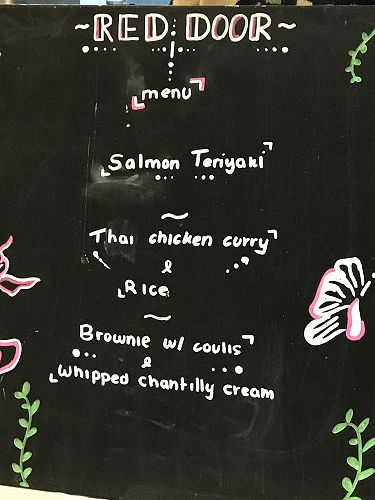 ~RED DOOR~
menu
Salmon Teriyaki
~
Thai chicken curry
&
Rice
~
Brownie w/ coulis
&
whipped chantilly cream